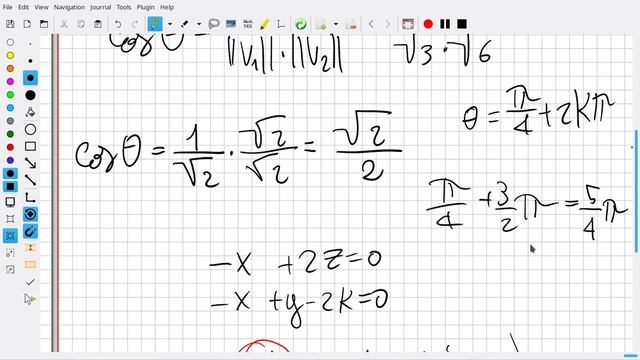 File Edit View Navigation Journal Tools Plugin Help
cos θ = ‖V₁‖·‖V₂‖ √3·√6
θ = π/4 + 2Kπ
cos θ = 1/√2 · √2/√2 = √2/2
π/4 + 3/2 π = 5/4 π
-x +2z=0
-x +y-2k=0